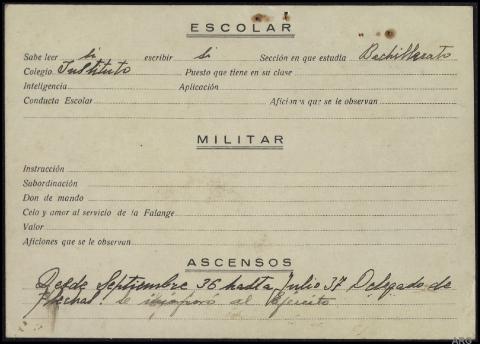 ESCOLAR
Sabe leer si escribir si Sección en que estudia Bachillerato
Colegio Instituto Puesto que tiene en su clase
Inteligencia Aplicación
Conducta Escolar Aficiones que se le observan
MILITAR
Instrucción
Subordinación
Don de mando
Celo y amor al servicio de la Falange
Valor
Aficiones que se le observan
ASCENSOS
Desde Septiembre 36 hasta Julio 37 Delegado de
Flechas. Se al Ejercito
ARG